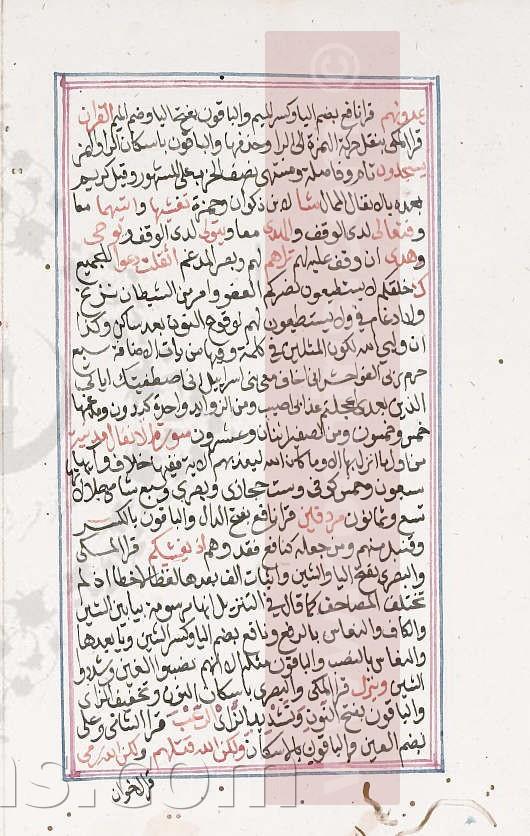 يمدونهم قرأ نافع بضم اليا وكسر الميم والباقون بفتح اليا وضم الميم القرآن
قرأ المكي بنقل حركة الهمزة إلى الراء وحذفها والباقون باسكان الراء والهمز
يسجدون تام وفاصلة ومنتهى نصف الحزب على المشهور وقيل كريم
بعده بالانفال الممال شاء لابن ذكوان وحمزة تغشيها وآتيهما معا
وفتعالى لدى الوقف والهدى معا ويتولى لدى الوقف ويوحى
وهدى ان وقف عليه لهم تراهم لهم وبصر المدغم اثقلت دعوا للجميع
ك خلقكم لا يستطيعون نصركم العفو وامر من الشيطان نزغ
ولا ادغام في ولا يستطيعون لهم لوقوع النون بعد ساكن وكذا
ان وليي الله لكون المثلين في كلمة وفيها من ياآت الاضافة سبع
حرم ربي الفواحش اني اخاف معي بني اسرائيل اني اصطفيتك اياتي
الذين بعدي اعجلتم عذابي اصيب ومن الزوايد واحدة كيدون ومدغمها
خمس وخمسون ومن الصغير اثنان وعشرون سورة الانفال مدنية
سبعون وخمس كوفي وست حجازي وبصري وسبع شامي جلالاتها
تسع وثمانون مردفين قرأ نافع بفتح الدال والباقون بالكسر
وقنبل منهم ومن جعله كنافع فقد وهم اذ يغشيكم قرأ المكي
والبصري بفتح اليا والشين واثبات الف بعدها لفظا لا خطا اذ لم
تختلف المصاحف كما قال في التنزيل انها مرسومة بيا بين الشين
والكاف والنعاس بالرفع ونافع بضم اليا وكسر الشين ويا بعدها
والنعاس بالنصب والباقون مثله الا انهم نصبوا الغين وشددوا
الشين وينزل قرأ المكي والبصري باسكان النون وتخفيف الزاي
والباقون بفتح النون وتشديد الزاي الرعب قرأ الشامي وعلي
بضم العين والباقون بالاسكان ولكن الله قتلهم ولكن الله رمى
قرأ الاخوان